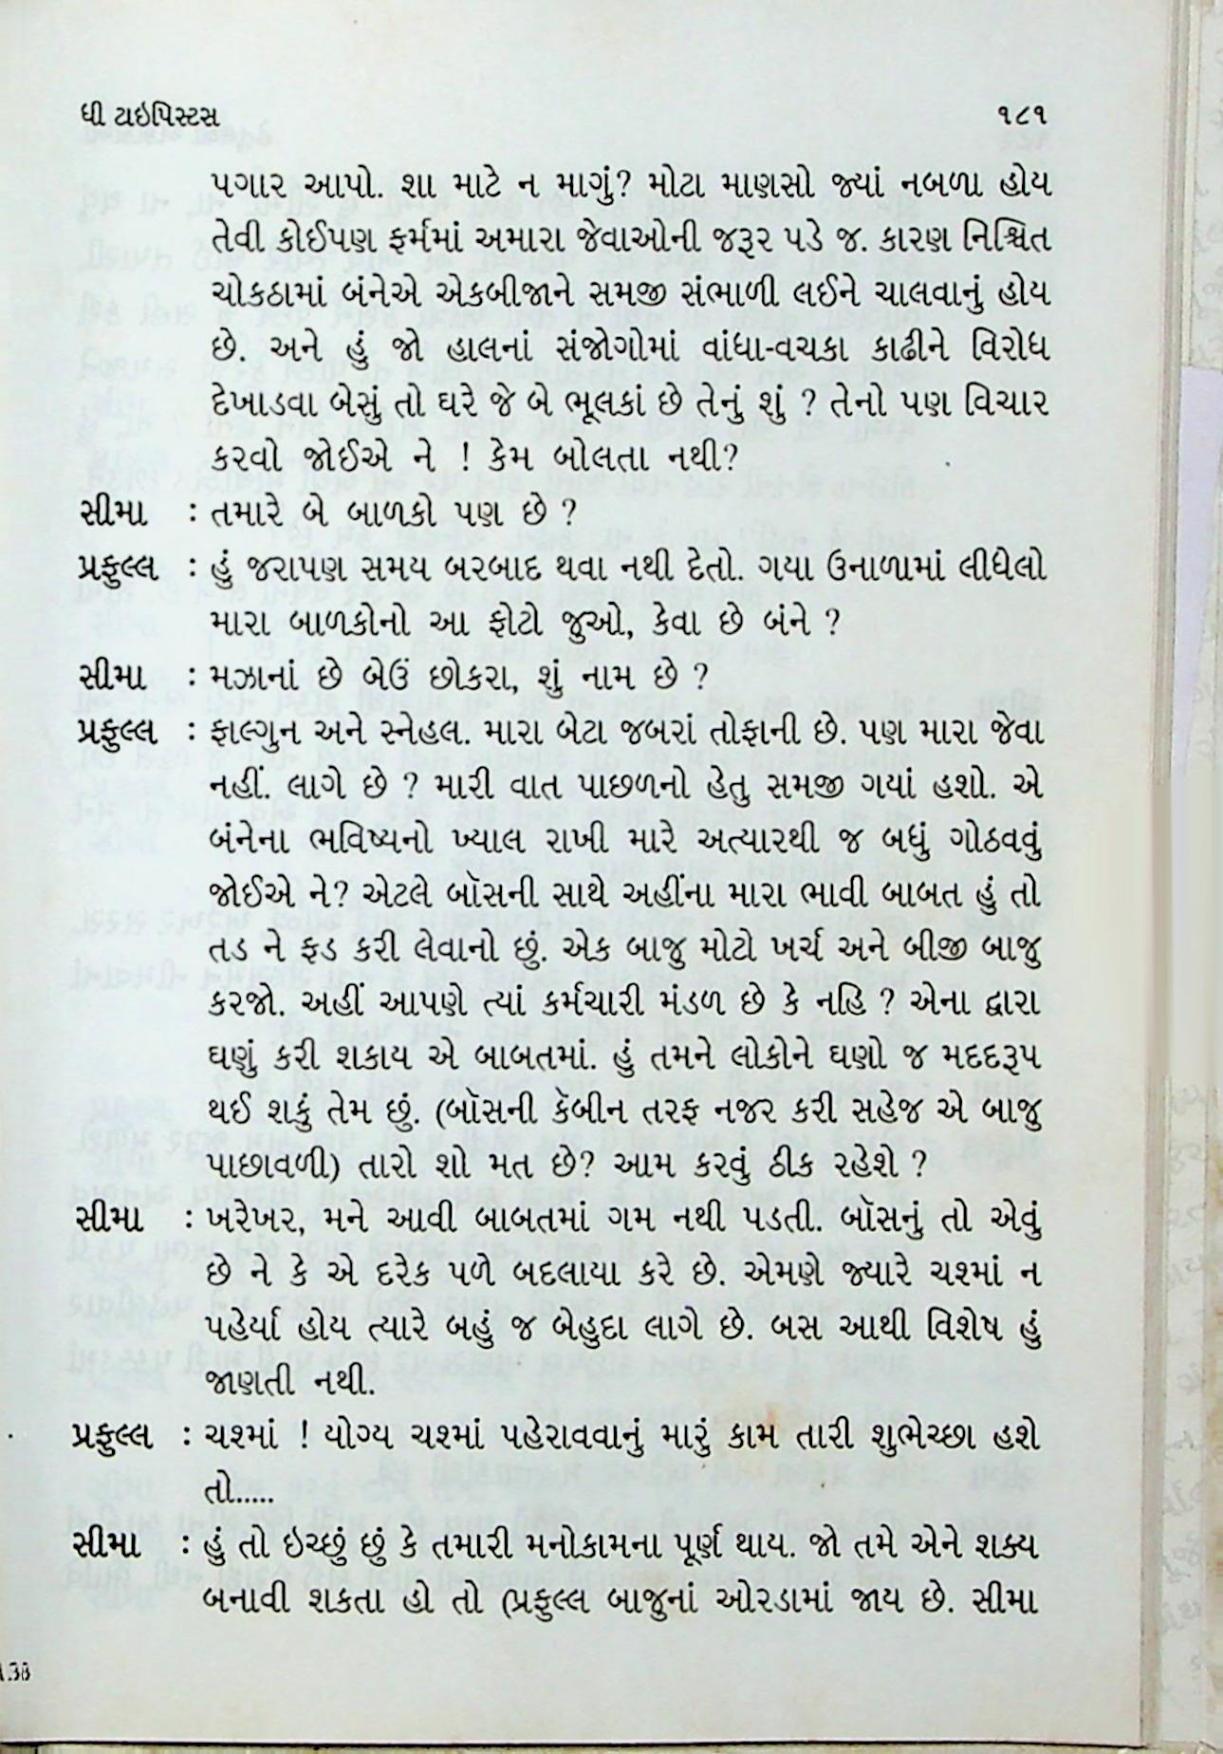 ધી ટાઇપિસ્ટસ ૧૮૧
પગાર આપો. શા માટે ન માગું? મોટા માણસો જ્યાં નબળા હોય
તેવી કોઈપણ ફર્મમાં અમારા જેવાઓની જરૂર પડે જ. કારણ નિશ્ચિત
ચોકઠામાં બંનેએ એકબીજાને સમજી સંભાળી લઈને ચાલવાનું હોય
છે. અને હું જો હાલનાં સંજોગોમાં વાંધા-વચકા કાઢીને વિરોધ
દેખાડવા બેસું તો ઘરે જે બે ભૂલકાં છે તેનું શું ? તેનો પણ વિચાર
કરવો જોઈએ ને ! કેમ બોલતા નથી?
સીમા : તમારે બે બાળકો પણ છે ?
પ્રફુલ્લ : હું જરાપણ સમય બરબાદ થવા નથી દેતો. ગયા ઉનાળામાં લીધેલો
મારા બાળકોનો આ ફોટો જુઓ, કેવા છે બંને ?
સીમા : મઝાનાં છે બેઉં છોકરા, શું નામ છે ?
પ્રફુલ્લ : ફાલ્ગુન અને સ્નેહલ. મારા બેટા જબરાં તોફાની છે. પણ મારા જેવા
નહીં. લાગે છે ? મારી વાત પાછળનો હેતુ સમજી ગયાં હશો. એ
બંનેના ભવિષ્યનો ખ્યાલ રાખી મારે અત્યારથી જ બધું ગોઠવવું
જોઈએ ને? એટલે બૉસની સાથે અહીંના મારા ભાવી બાબત હું તો
તડ ને ફડ કરી લેવાનો છું. એક બાજુ મોટો ખર્ચ અને બીજી બાજુ
કરજો. અહીં આપણે ત્યાં કર્મચારી મંડળ છે કે નહિ ? એના દ્વારા
ઘણું કરી શકાય એ બાબતમાં. હું તમને લોકોને ઘણો જ મદદરૂપ
થઈ શકું તેમ છું. (બૉસની કૅબીન તરફ નજર કરી સહેજ એ બાજુ
પાછાવળી) તારો શો મત છે? આમ કરવું ઠીક રહેશે ?
સીમા : ખરેખર, મને આવી બાબતમાં ગમ નથી પડતી. બૉસનું તો એવું
છે ને કે એ દરેક પળે બદલાયા કરે છે. એમણે જ્યારે ચશ્માં ન
પહેર્યા હોય ત્યારે બહું જ બેહુદા લાગે છે. બસ આથી વિશેષ હું
જાણતી નથી.
પ્રફુલ્લ : ચશ્માં ! યોગ્ય ચશ્માં પહેરાવવાનું મારું કામ તારી શુભેચ્છા હશે
તો.....
સીમા : હું તો ઇચ્છું છું કે તમારી મનોકામના પૂર્ણ થાય. જો તમે એને શક્ય
બનાવી શકતા હો તો (પ્રફુલ્લ બાજુનાં ઓરડામાં જાય છે. સીમા